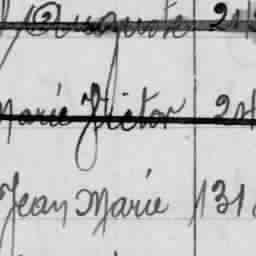 Auguste 21
Marie Victor 24
Jean Marie 131